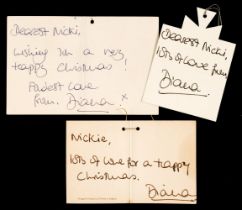 Dearest Nicki,
Wishing you a very
happy Christmas!
Fondest love
from, Diana. x
Dearest Nicki,
lots of love from,
Diana.
Nickie,
lots of love for a happy
Christmas.
Diana.